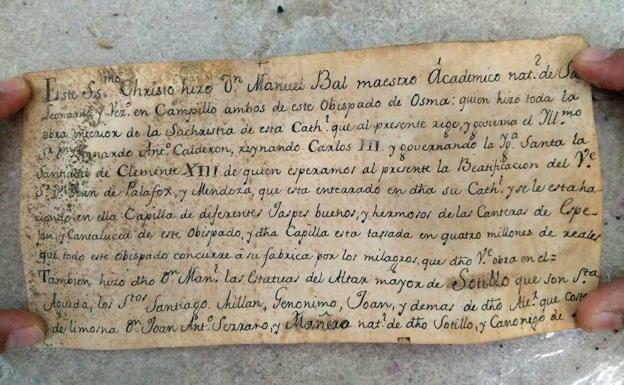 Este Ss.mo Christo hizo Dn. Manuel Bal maestro Ácademico nat.l de Sn.
Leonardo y Vez.o en Campillo ambos de este Obispado de Osma: quien hizo toda la
obra interior de la Sachristia de esta Cath.l que al presente rige, y govierna el Yll.mo
Sr. Dn. Bernardo Ant.o Calderon, reynando Carlos III. y governando la Yg.a Santa la
Santidad de Clemente XIII de quien esperamos al presente la Beatificacion del V.e
Sr. Dn. Joan de Palafox, y Mendoza, que esta enterrado en dha su Cath.l y se le esta ha-
ciendo en ella Capilla de diferentes Jaspes buenos, y hermosos de las Canteras de Espe-
jon, y Cantalucia de este Obispado, y dha Capilla esta tasada en quatro millones de reales
que todo este Obispado concurre a su fabrica por los milagros, que dho V.e obra en el=
Tambien hizo dho Dn. Man.l las Estatuas del Altar mayor de Sotillo que son S.ta
Agueda, los S.tos Santiago, Millan, Geronimo, Joan, y demas de dho Al.r que costeo
de limosna Dn. Joan Ant.o Serrano, y Mañero nat.l de dho Sotillo, y Canonigo de